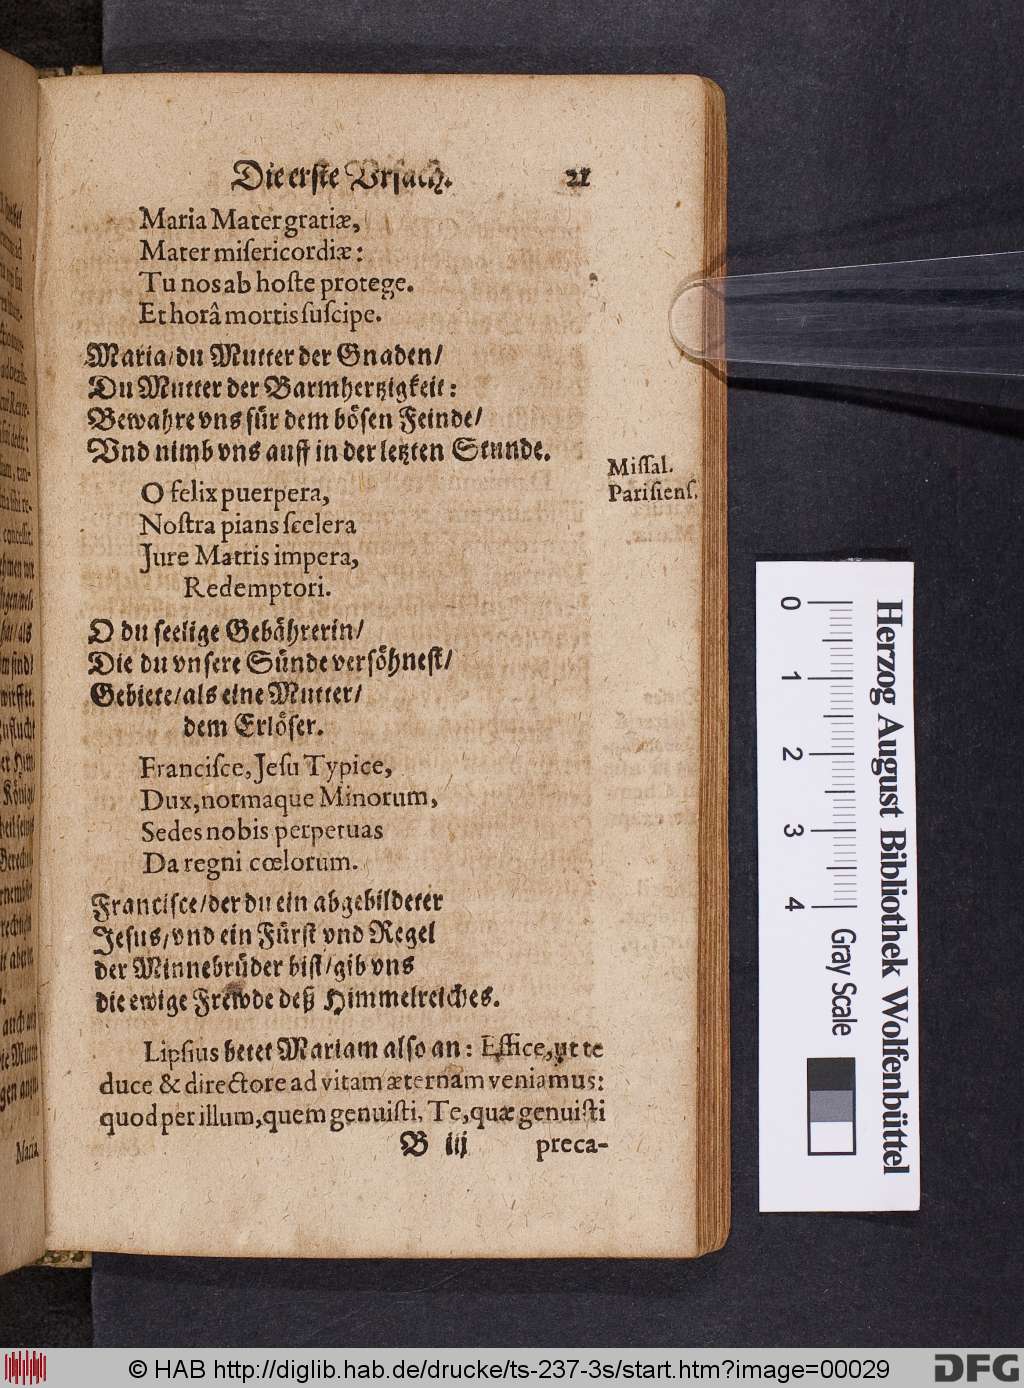 Die erste Vrsach. 21
Maria Mater gratiæ,
Mater miſericordiæ:
Tu nos ab hoſte protege.
Et horâ mortis ſuſcipe.
Maria/ du Mutter der Gnaden/
Du Mutter der Barmhertzigkeit:
Bewahre vns für dem böſen Feinde/
Vnd nimb vns auff in der letzten Stunde.
Miſſal.
Pariſienſ.
O felix puerpera,
Noſtra pians ſcelera
Jure Matris impera,
Redemptori.
O du ſeelige Gebährerin/
Die du vnſere Sünde verſöhneſt/
Gebiete/ als eine Mutter/
dem Erlöſer.
Franciſce, Jeſu Typice,
Dux, normaque Minorum,
Sedes nobis perpetuas
Da regni cœlorum.
Franciſce/ der du ein abgebildeter
Jeſus/ vnd ein Fürſt vnd Regel
der Minnebrüder biſt/ gib vns
die ewige Frewde deß Himmelreiches.
Lipſius betet Mariam alſo an: Effice, ut te
duce & directore ad vitam æternam veniamus:
quod per illum, quem genuiſti, Te, quæ genuiſti
B iij preca-
Maria
0 1 2 3 4
Gray Scale
Herzog August Bibliothek Wolfenbüttel
© HAB http://diglib.hab.de/drucke/ts-237-3s/start.htm?image=00029
DFG